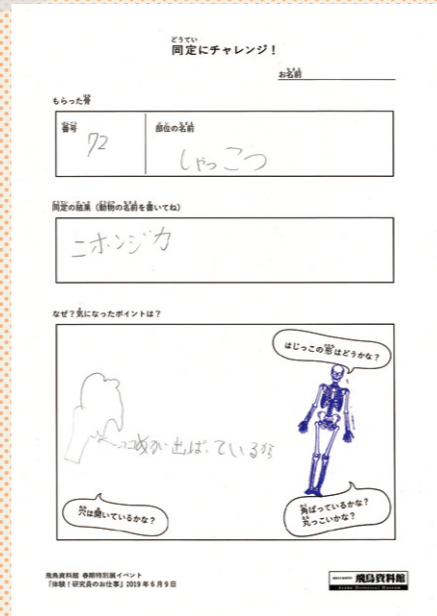 どうてい
同定にチャレンジ！
お名前
もらった骨
番号
72
部位の名前
しゃっこつ
同定の結果（動物の名前を書いてね）
ニホンジカ
なぜ？気になったポイントは？
はじっこの形はどうかな？
出ぱっているから
穴は開いているかな？
角ばっているかな？
丸っこいかな？
飛鳥資料館 春期特別展イベント
「体験！研究員のお仕事」2019年6月9日
飛鳥資料館